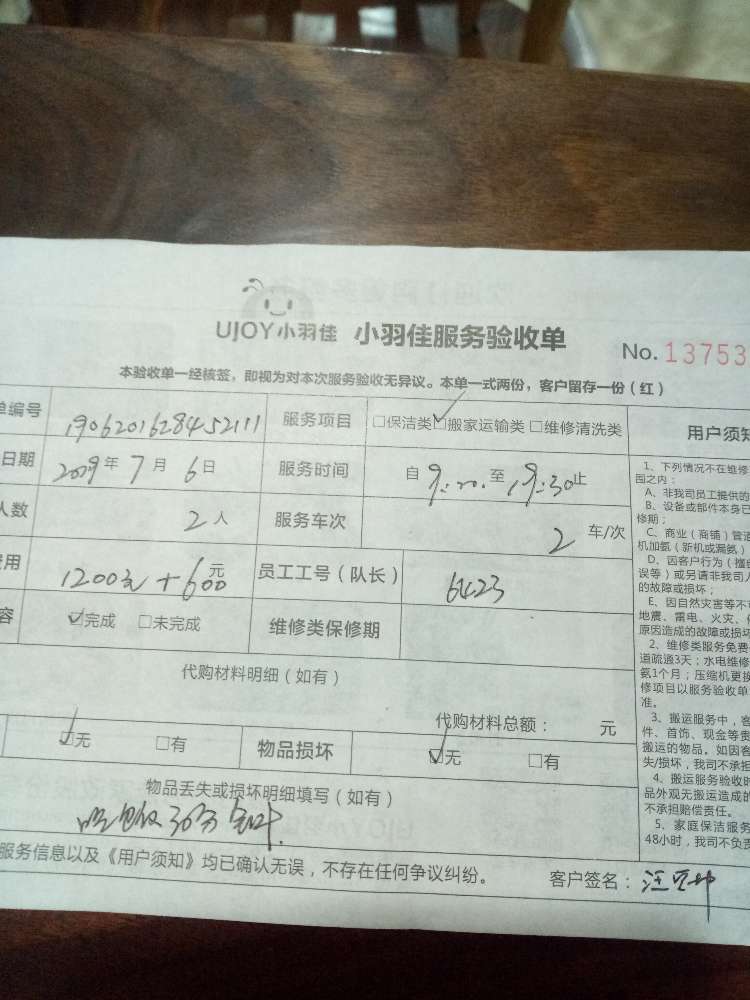 UJOY小羽佳 小羽佳服务验收单 No. 13753
本验收单一经核签，即视为对本次服务验收无异议。本单一式两份，客户留存一份（红）
单编号 1906201628452111 服务项目 □保洁类 ☑搬家运输类 □维修清洗类 用户须知
日期 2019年7月6日 服务时间 自9:20.至19:30止
人数 2人 服务车次 2车/次
费用 1200元+600元 员工工号（队长） 6423
容 ☑完成 □未完成 维修类保修期
代购材料明细（如有）
代购材料总额： 元
☑无 □有 物品损坏 ☑无 □有
物品丢失或损坏明细填写（如有）
30分
服务信息以及《用户须知》均已确认无误，不存在任何争议纠纷。 客户签名：汪
1、下列情况不在维修
围之内：
A、非我司员工提供的
B、设备或部件本身已
修期；
C、商业（商铺）管道
机加氨（新机或漏氨）
D、因客户行为（撞
误等）或另请非我司人
的故障或损坏；
E、因自然灾害等不可
地震、雷电、火灾、
原因造成的故障或损坏
2、维修类服务免费
道疏通3天；水电维修
氨1个月；压缩机更换
修项目以服务验收单
准。
3、搬运服务中，客
件、首饰、现金等贵
搬运的物品。如因客
失/损坏，我司不承担
4、搬运服务验收时
品外观无搬运造成的
不承担赔偿责任。
5、家庭保洁服务
48小时，我司不负责